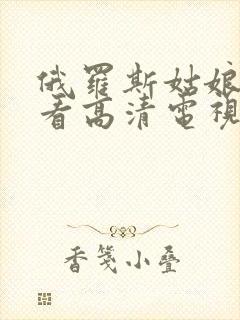 俄羅斯姑娘
看高清電視
香箋小叠